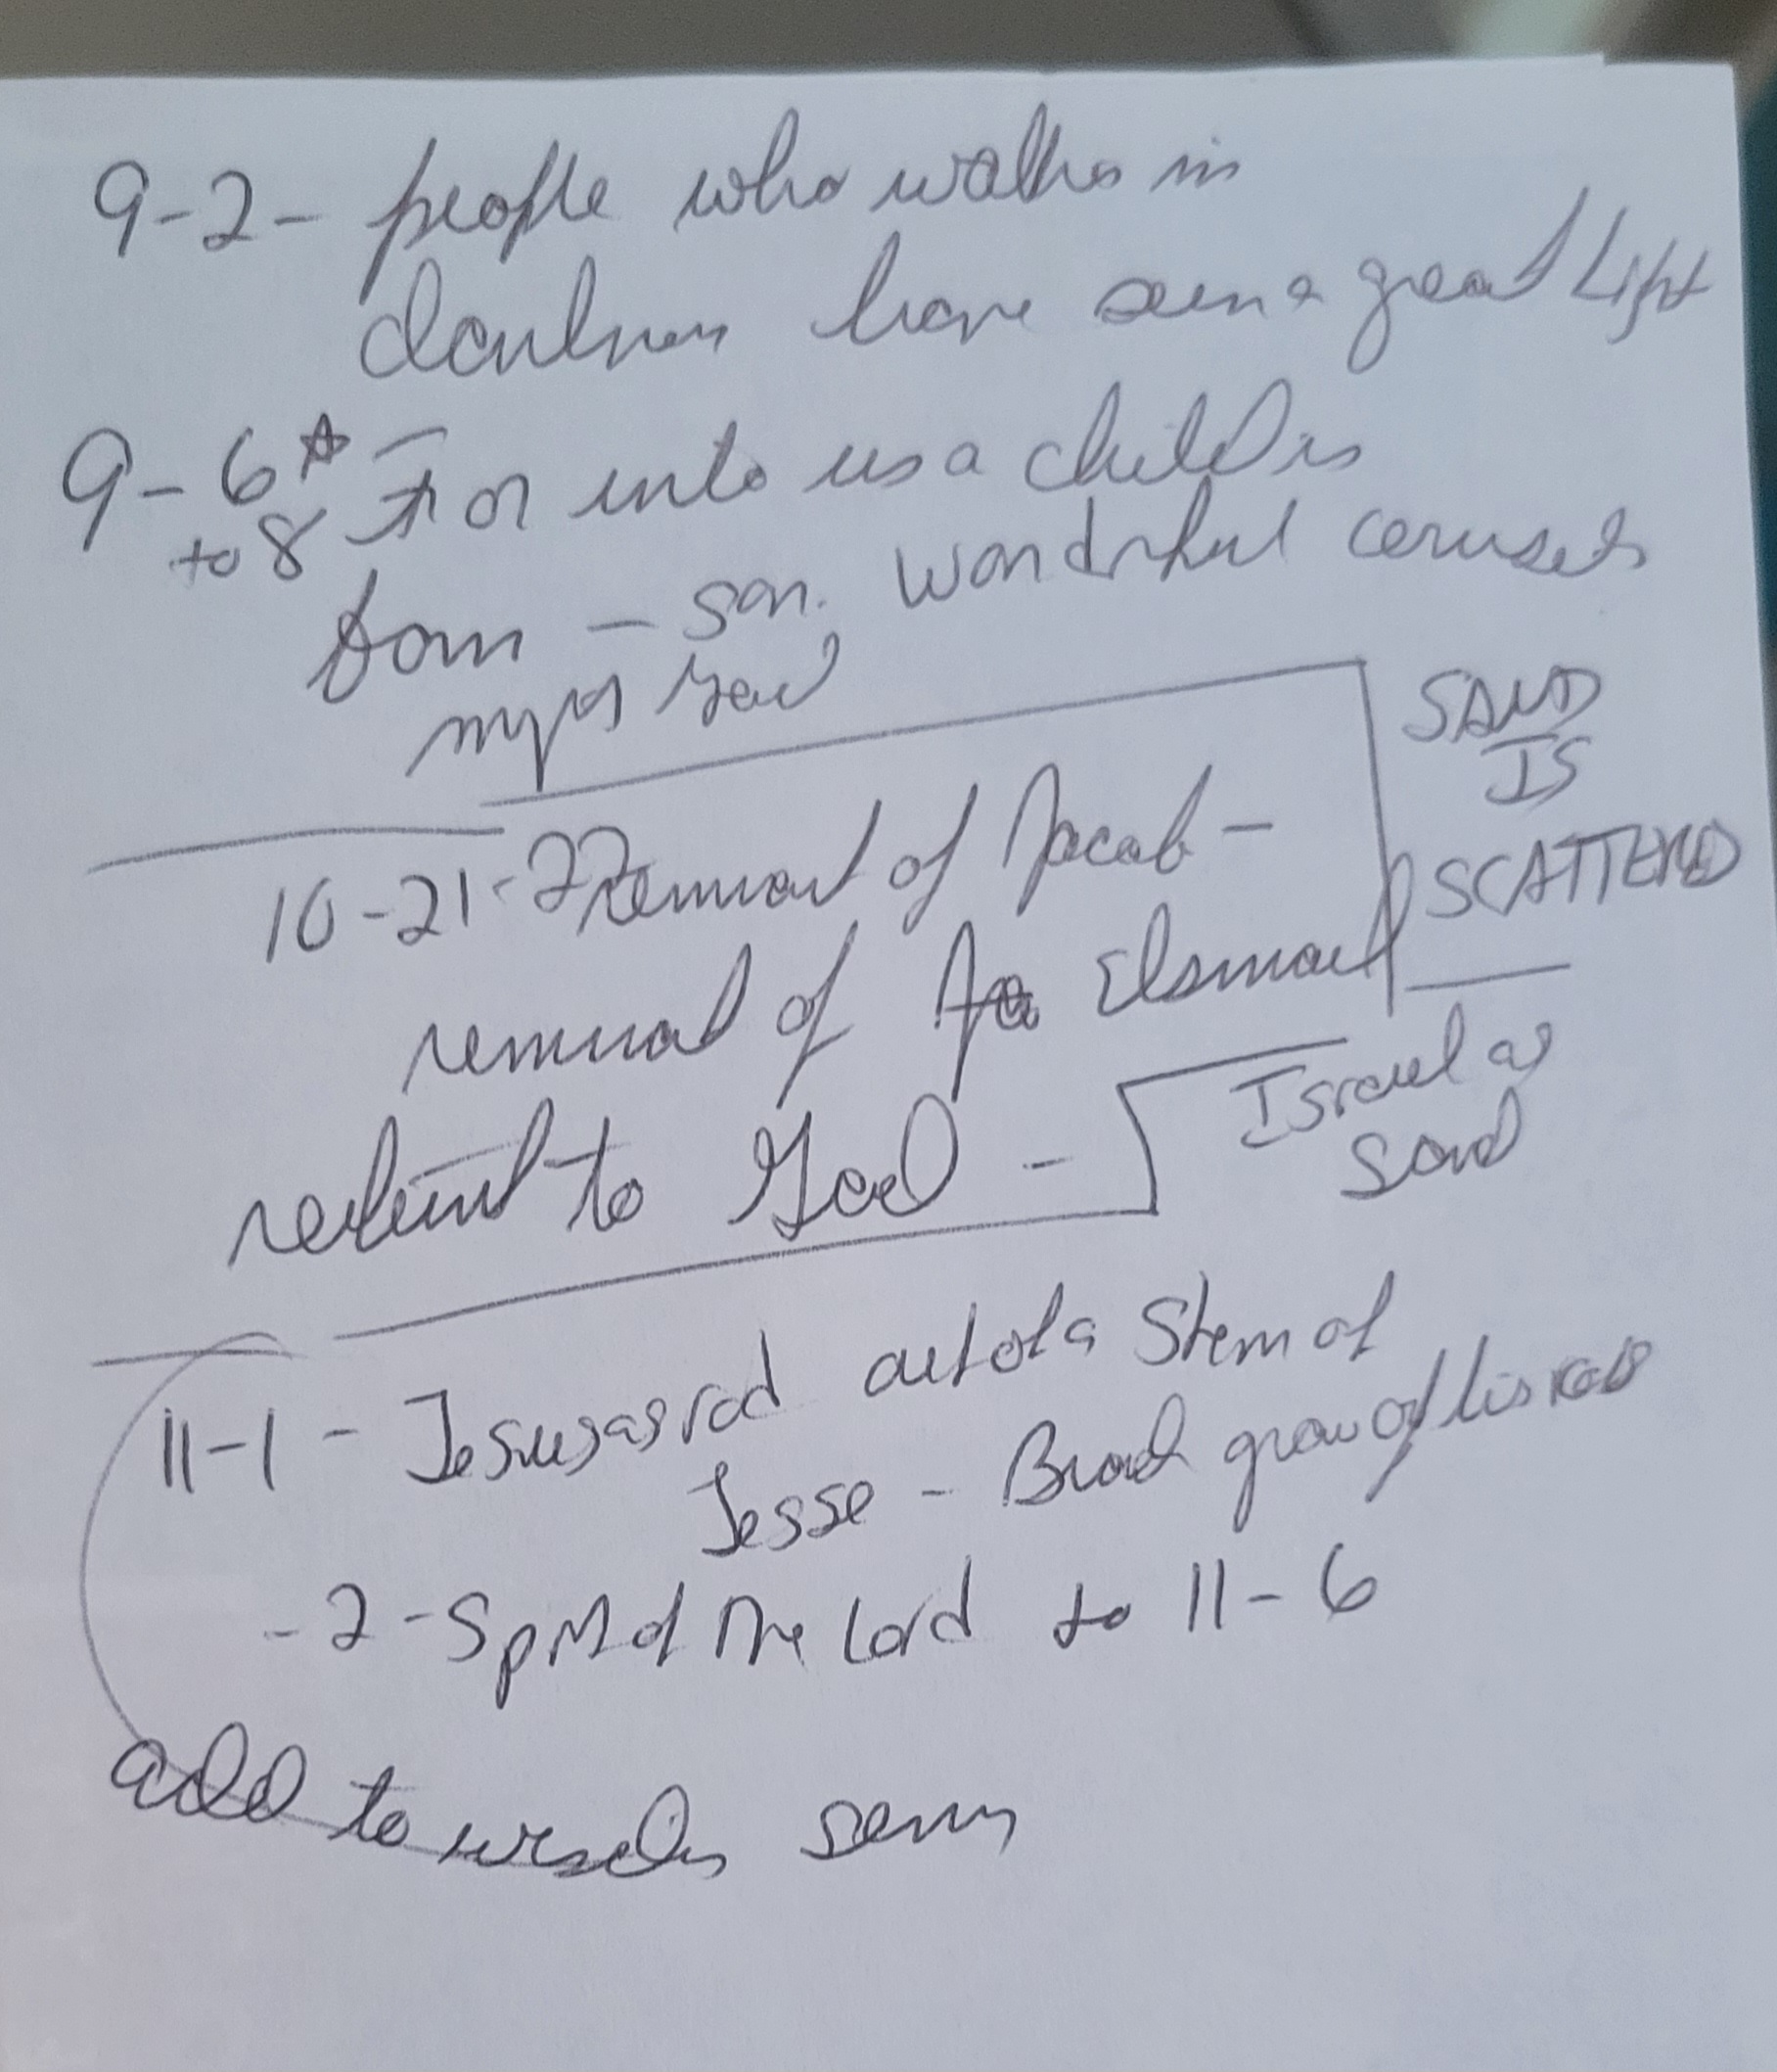 9-2- people who walks in
darkness have seen a great Light
9-6☆ - For unto us a child is
to 8
born - son. wonderful
God
SAND
IS
SCATTERED
10-21-22 remnant of Jacob -
remnant of
return to God -
Israel as
sand
11-1 - Jesus as rod out of a stem of
Jesse - Branch grow of his roots
-2- Spirit of the Lord to 11-6
add to